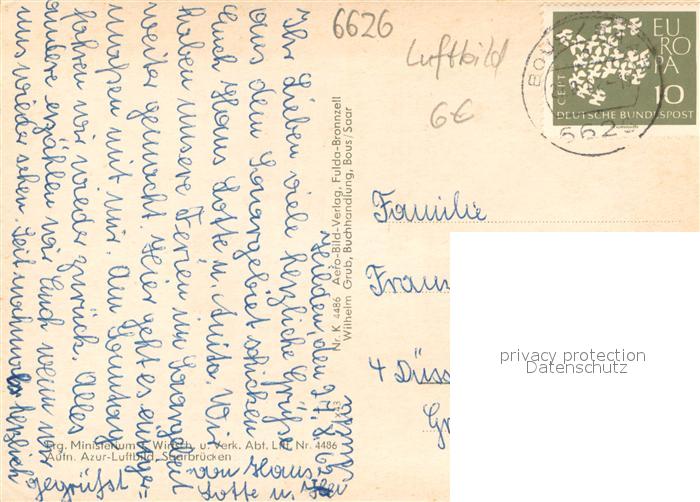 6626
Luftbild
6€
BOUS
EUROPA
CEPT
10
DEUTSCHE BUNDESPOST
662
den 24.8.62
Ihr Lieben viele herzliche Grüße
aus dem Saargebiet schicken
Euch Hans Lotte u. Anita. Wir
haben unsere Ferien im Saargebiet
weiter gemacht. Hier geht es einiger-
maßen mit mir. Am Sonntag
fahren wir wieder zurück. Alles
andere erzählen wir Euch wenn wir
uns wieder sehen. Seit nochmals herzlich
gegrüßt von Hans
Lotte u.
Nr. K 4486 Aero-Bild-Verlag, Fulda-Bronnzell
Wilhelm Grub, Buchhandlung, Bous/Saar
Frg. Ministerium f. Wirtsch. u. Verk. Abt. Lft. Nr. 4486
Aufn. Azur-Luftbild, Saarbrücken
Familie
Fran
4 Düss
G
privacy protection
Datenschutz